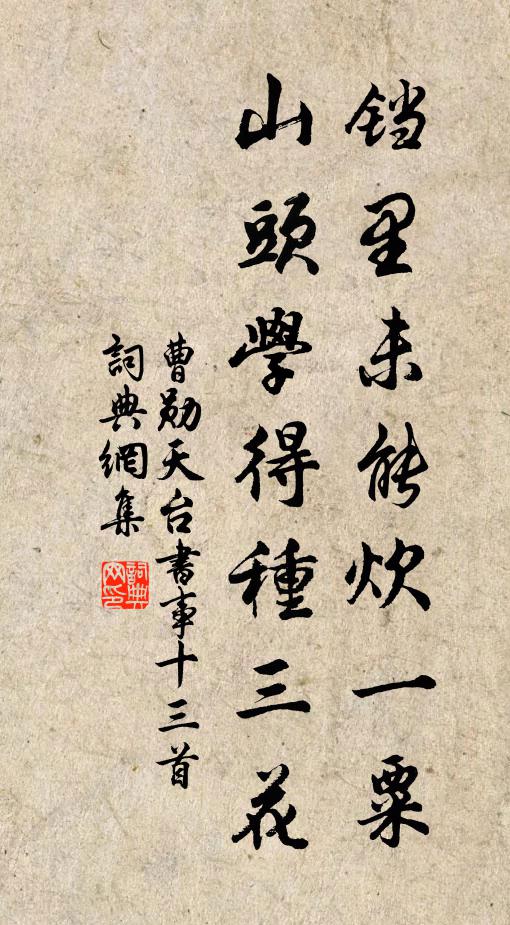 铛里未能炊一粟
山頭學得種三花
曹勛天台書事十三首
詞典網集
詞典网印